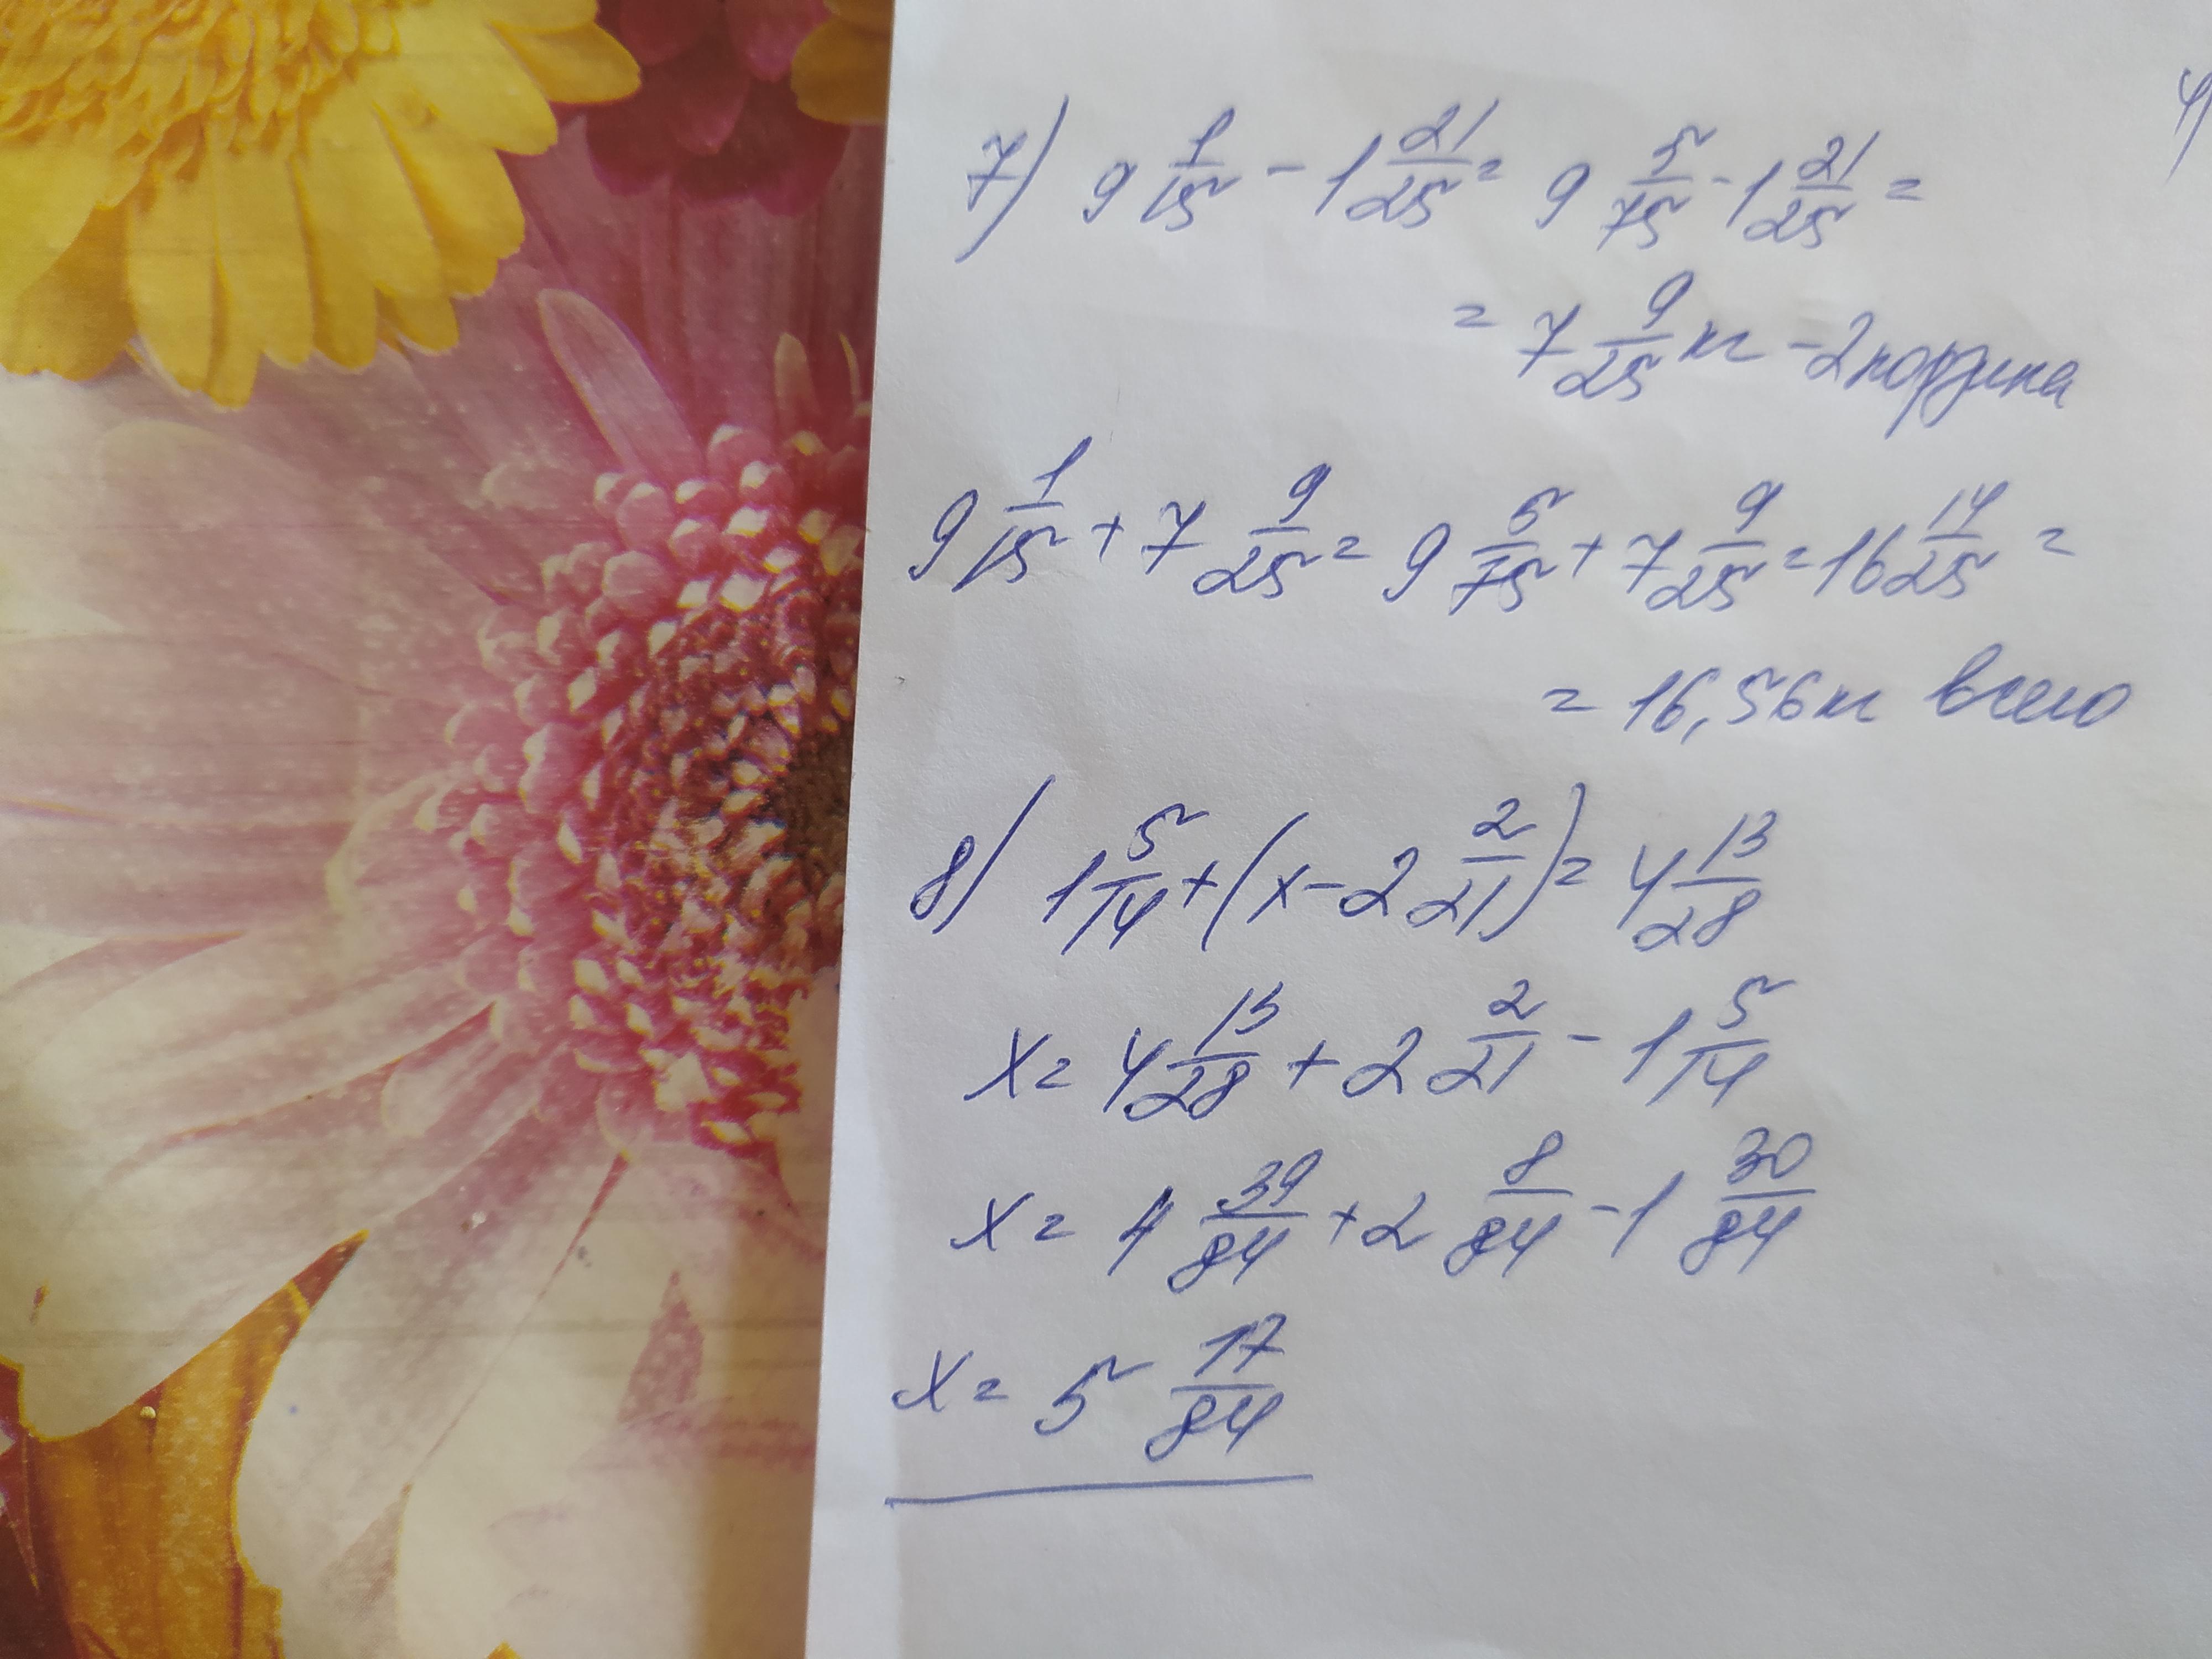 4)
7) 9 1/15 - 1 21/25 = 9 5/75 - 1 21/25 =
= 7 9/25 кг - 2 корзина
9 1/15 + 7 9/25 = 9 5/75 + 7 9/25 = 16 14/25 =
= 16,56 кг всего
8) 1 5/14 + (x - 2 2/21) = 4 13/28
x = 4 13/28 + 2 2/21 - 1 5/14
x = 4 39/84 + 2 8/84 - 1 30/84
x = 5 17/84